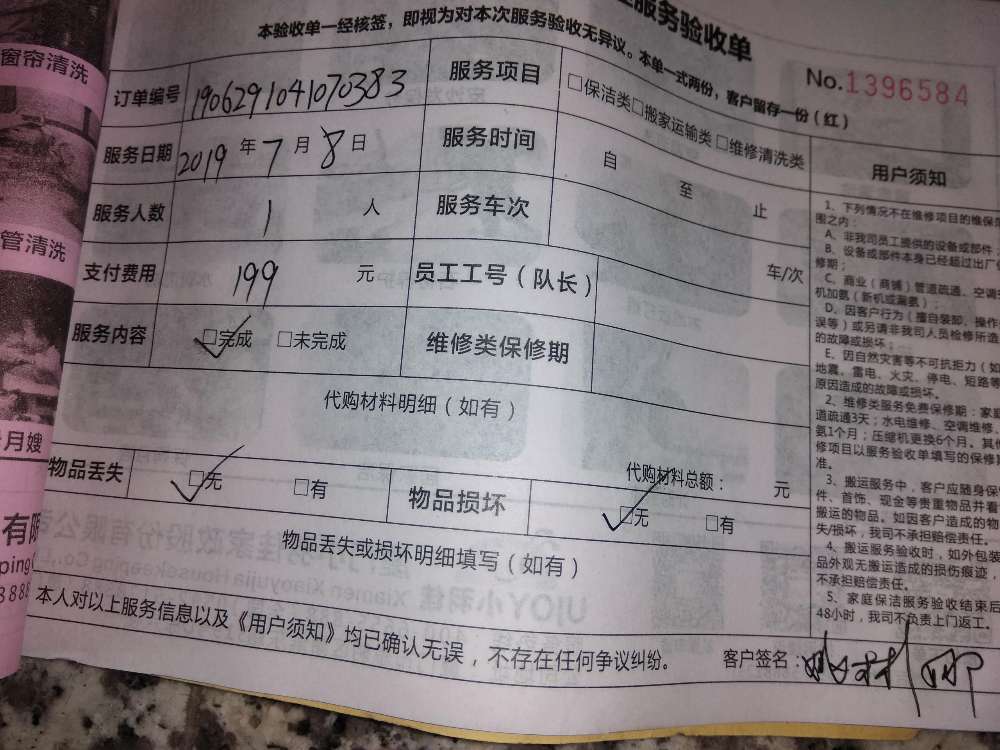 服务验收单
本验收单一经核签，即视为对本次服务验收无异议。本单一式两份，客户留存一份（红）
No.1396584
订单编号 1906291041070383
服务项目 □保洁类□搬家运输类□维修清洗类
服务日期 2019年7月8日
服务时间 自 至 止
服务人数 1人
服务车次 车/次
支付费用 199元
员工工号（队长）
服务内容 □完成 □未完成
维修类保修期
代购材料明细（如有）
代购材料总额： 元
物品丢失 □无 □有
物品损坏 □无 □有
物品丢失或损坏明细填写（如有）
本人对以上服务信息以及《用户须知》均已确认无误，不存在任何争议纠纷。
客户签名：
用户须知
1、下列情况不在维修项目的维保
围之内：
A、非我司员工提供的设备或部件
B、设备或部件本身已经超过出厂
修期；
C、商业（商铺）管道疏通、空调
机加氨（新机或漏氨）；
D、因客户行为（擅自装卸、操作
误等）或另请非我司人员检修所造
的故障或损坏；
E、因自然灾害等不可抗拒力（如
地震、雷电、火灾、停电、短路等
原因造成的故障或损坏。
2、维修类服务免费保修期：家庭
道疏通3天；水电维修、空调维修、
氨1个月；压缩机更换6个月。其他
修项目以服务验收单填写的保修期
准。
3、搬运服务中，客户应随身保管
件、首饰、现金等贵重物品并看
搬运的物品。如因客户造成的物
失/损坏，我司不承担赔偿责任。
4、搬运服务验收时，如外包装
品外观无搬运造成的损伤痕迹，
不承担赔偿责任。
5、家庭保洁服务验收结束后
48小时，我司不负责上门返工。
窗帘清洗
管清洗
月嫂
有限
ping
8888